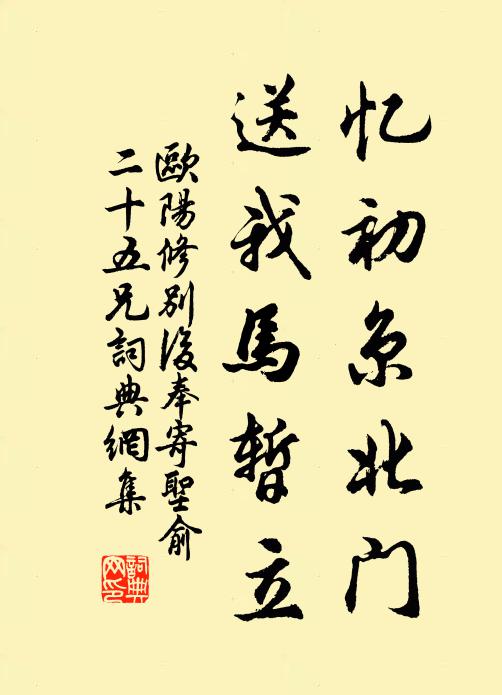 忆初京北门
送我馬暫立
歐陽修别後奉寄聖俞
二十五兄詞典網集
詞典
网印